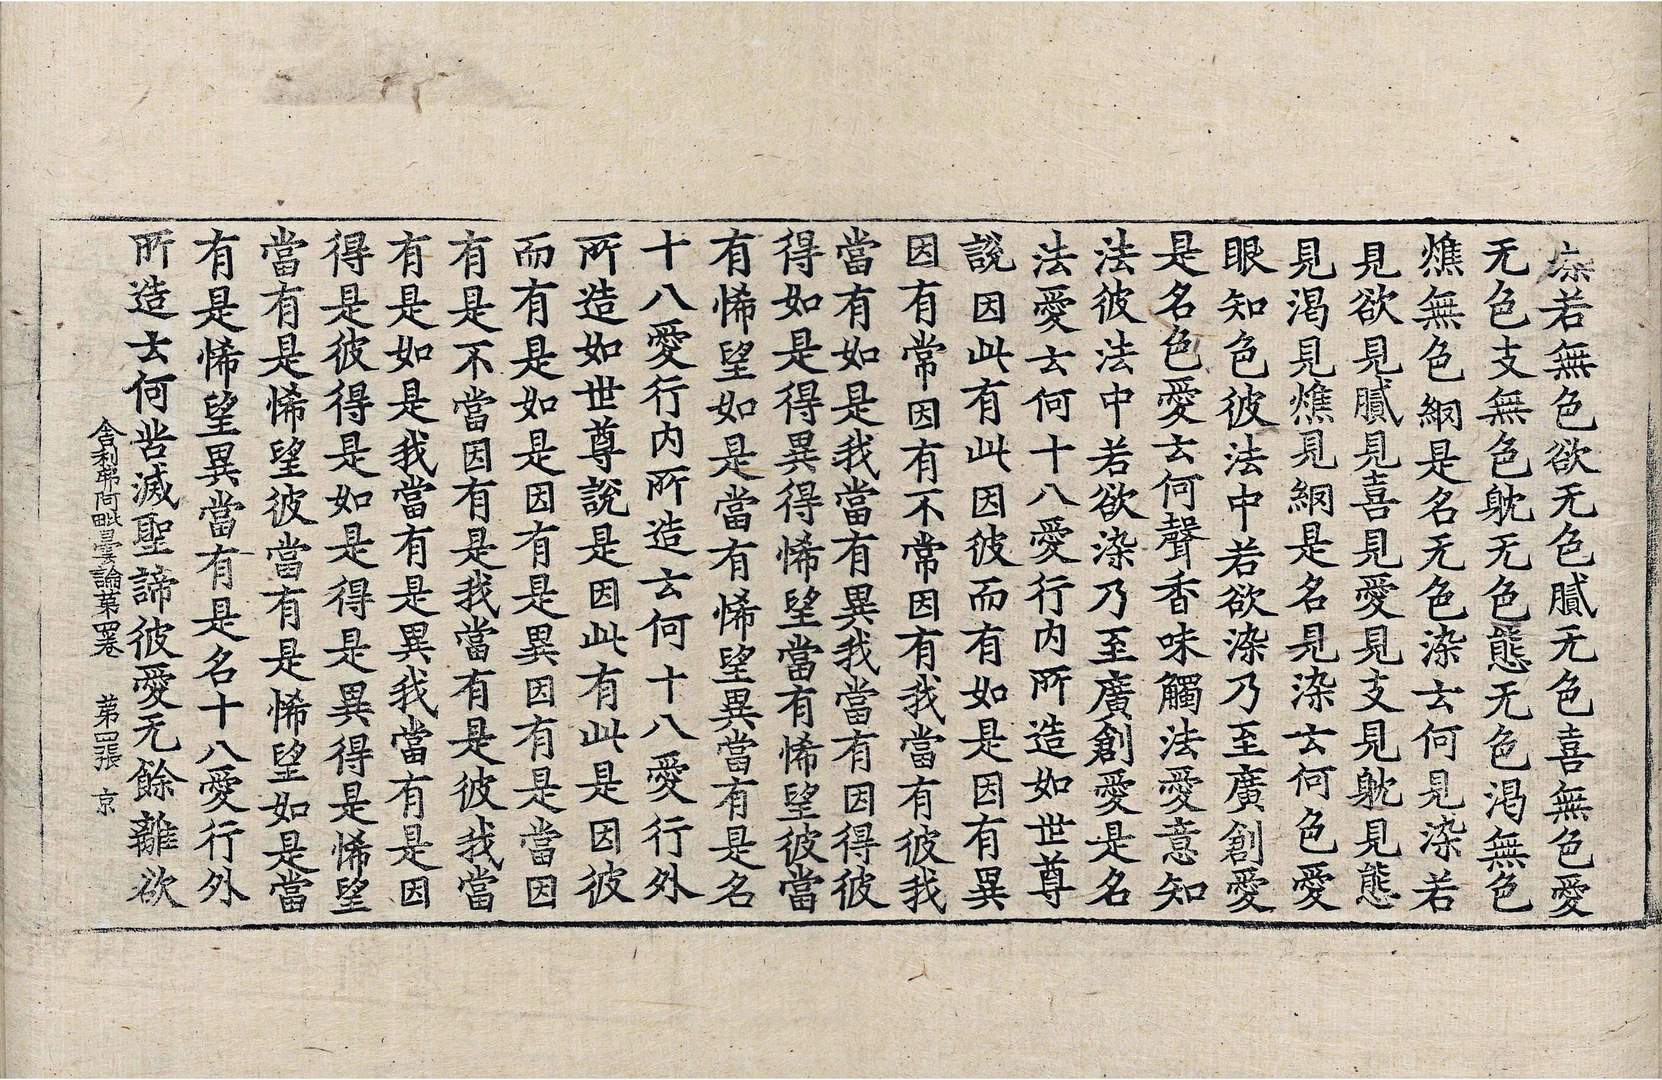 染若無色欲无色膩无色喜無色愛
无色支無色躭无色態无色渴無色
燋無色網是名无色染云何見染若
見欲見膩見喜見愛見支見躭見態
見渴見燋見網是名見染云何色愛
眼知色彼法中若欲染乃至廣創愛
是名色愛云何聲香味觸法愛意知
法彼法中若欲染乃至廣創愛是名
法愛云何十八愛行内所造如世尊
說因此有此因彼而有如是因有異
因有常因有不常因有我當有彼我
當有如是我當有異我當有因得彼
得如是得異得悕望當有悕望彼當
有悕望如是當有悕望異當有是名
十八愛行内所造云何十八愛行外
所造如世尊說是因此有此是因彼
而有是如是因有是異因有是當因
有是不當因有是我當有是彼我當
有是如是我當有是異我當有是因
得是彼得是如是得是異得是悕望
當有是悕望彼當有是悕望如是當
有是悕望異當有是名十八愛行外
所造云何苦滅聖諦彼愛无餘離欲
舍利弗阿毗曇論第四卷 第四張 京